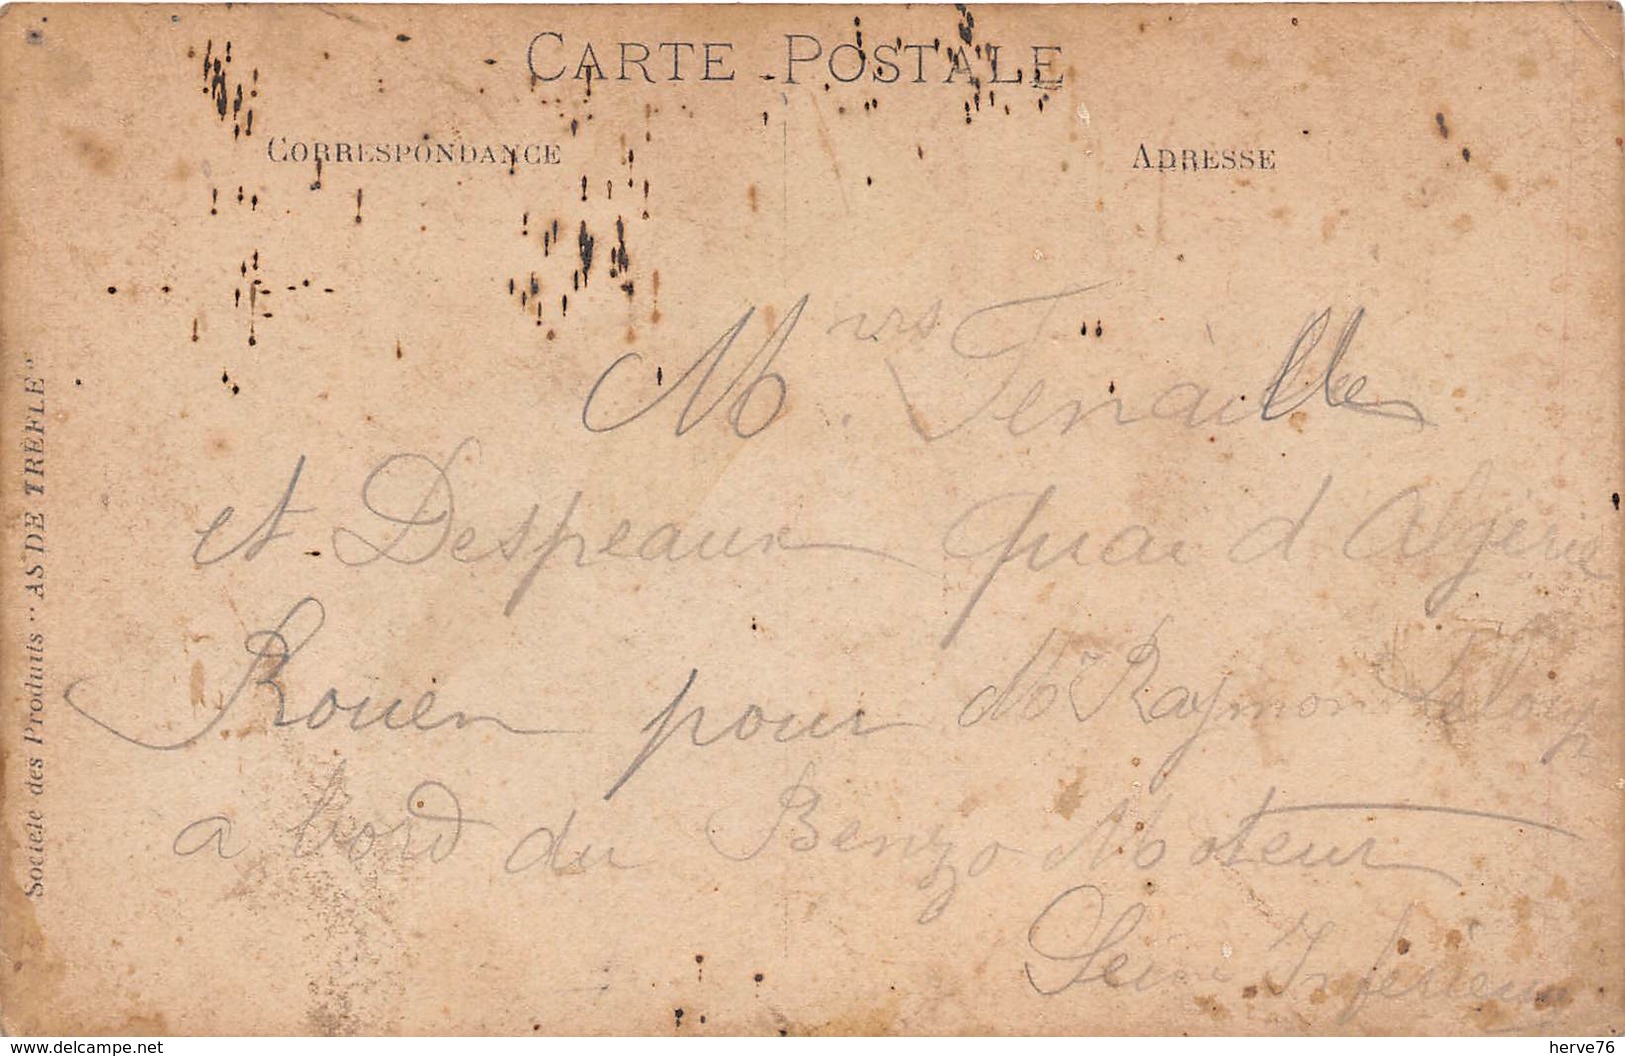 CARTE POSTALE
CORRESPONDANCE
ADRESSE
Mrs Tenaille
et Despeaux quai d Algérie
Rouen pour Mr Raymond Leloup
a bord du Benzo Moteur
Seine Inférieure
Société des Produits "AS DE TRÈFLE"
www.delcampe.net
herve76